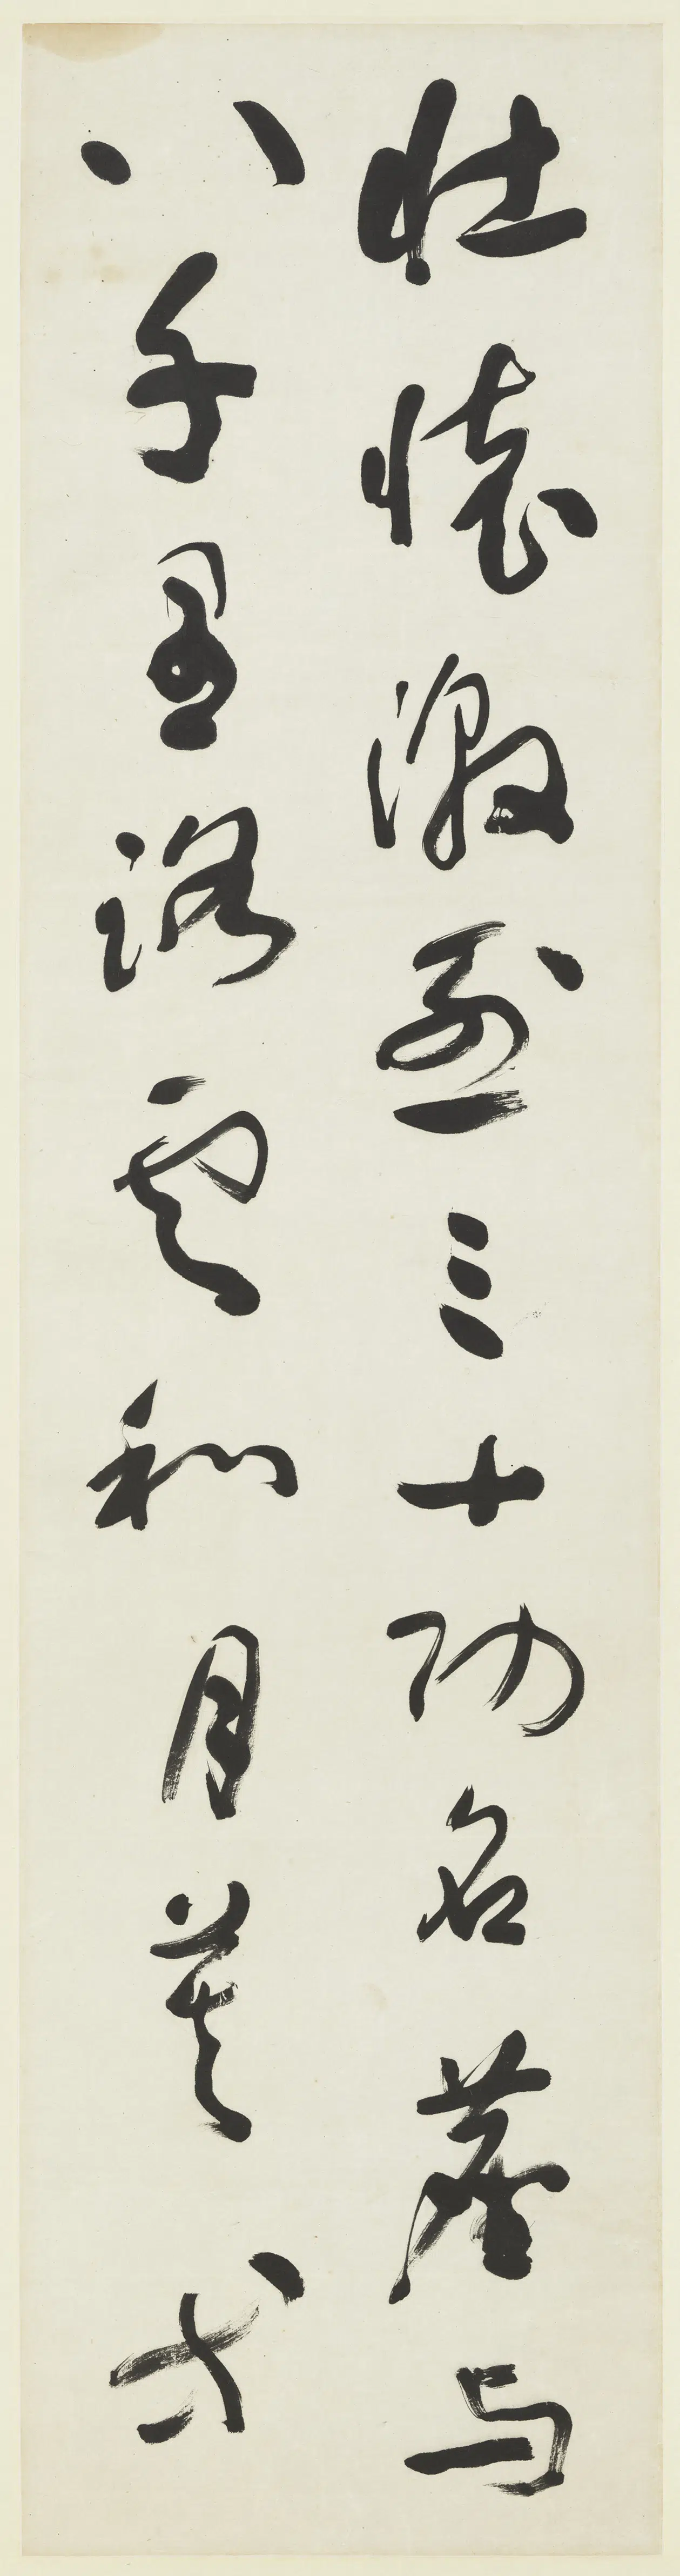 壯懷激烈三十功名塵与
八千里路雲和月莫等